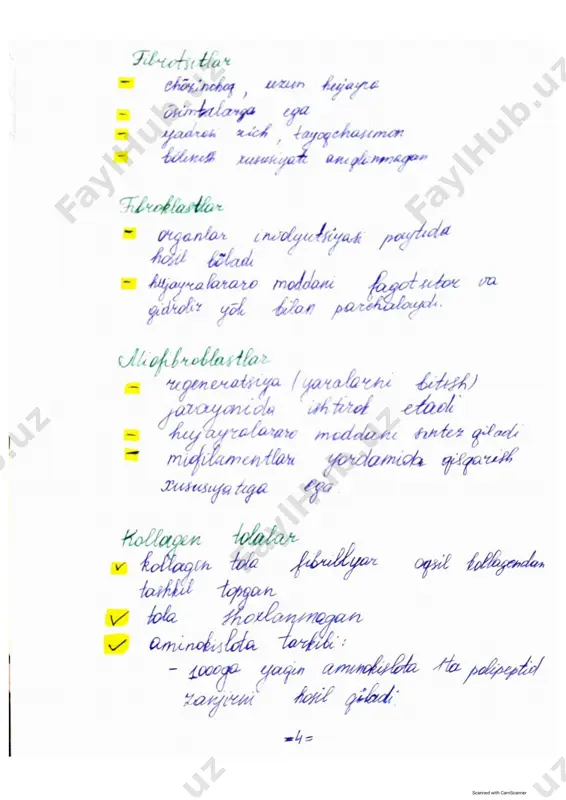 Fibrotsitlar
- chòzinchoq, uzun hujayra
- òsimtalarga ega
- yadrosi zich, tayoqchasimon
- bòlinish xususiyati aniqlanmagan
Fibroklastlar
- organlar involyutsiyasi paytida
hosil bòladi
- hujayralararo moddani fagotsitor va
gidroliz yòli bilan parchalaydi.
Miofibroblastlar
- regeneratsiya (yaralarni bitish)
jarayonida ishtirok etadi
- hujayralararo moddani sintez qiladi
- miofilamentlari yordamida qisqarish
xususiyatiga ega.
Kollagen tolalar
✓ kollagen tola fibrillyar oqsil kollagendan
tashkil topgan
✓ tola shoxlanmagan
✓ aminokislota tarkibi:
- 1000ga yaqin aminokislota polipeptid
zanjirni hosil qiladi.
=4=
FaylHub.uz
FaylHub.uz
FaylHub.uz
Scanned with CamScanner